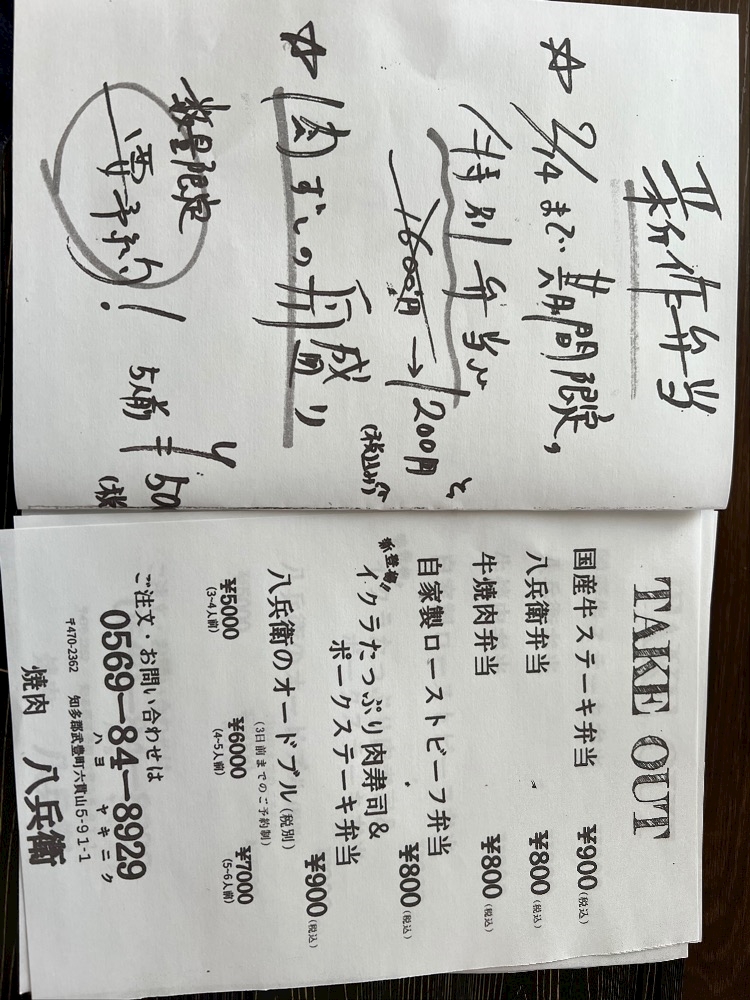 新作弁当
☆ 2/14まで 期間限定、
特別弁当が
1600円 → 1200円 と
(税込み)
☆ 肉ずしの舟盛り
数量限定
要予約!
5人前 ¥50
(税
TAKE OUT
国産牛ステーキ弁当 ¥900(税込)
八兵衛弁当 ¥800(税込)
牛焼肉弁当 ¥800(税込)
自家製ローストビーフ弁当 ¥800(税込)
新登場!!
イクラたっぷり肉寿司&
ポークステーキ弁当 ¥900(税込)
八兵衛のオードブル(税別)
(3日前までのご予約制)
¥5000 ¥6000 ¥7000
(3~4人前) (4~5人前) (5~6人前)
ご注文・お問い合わせは
0569-84-8929
ハヨ ヤキニク
〒470-2362 知多郡武豊町六貫山5-91-1
焼肉 八兵衛